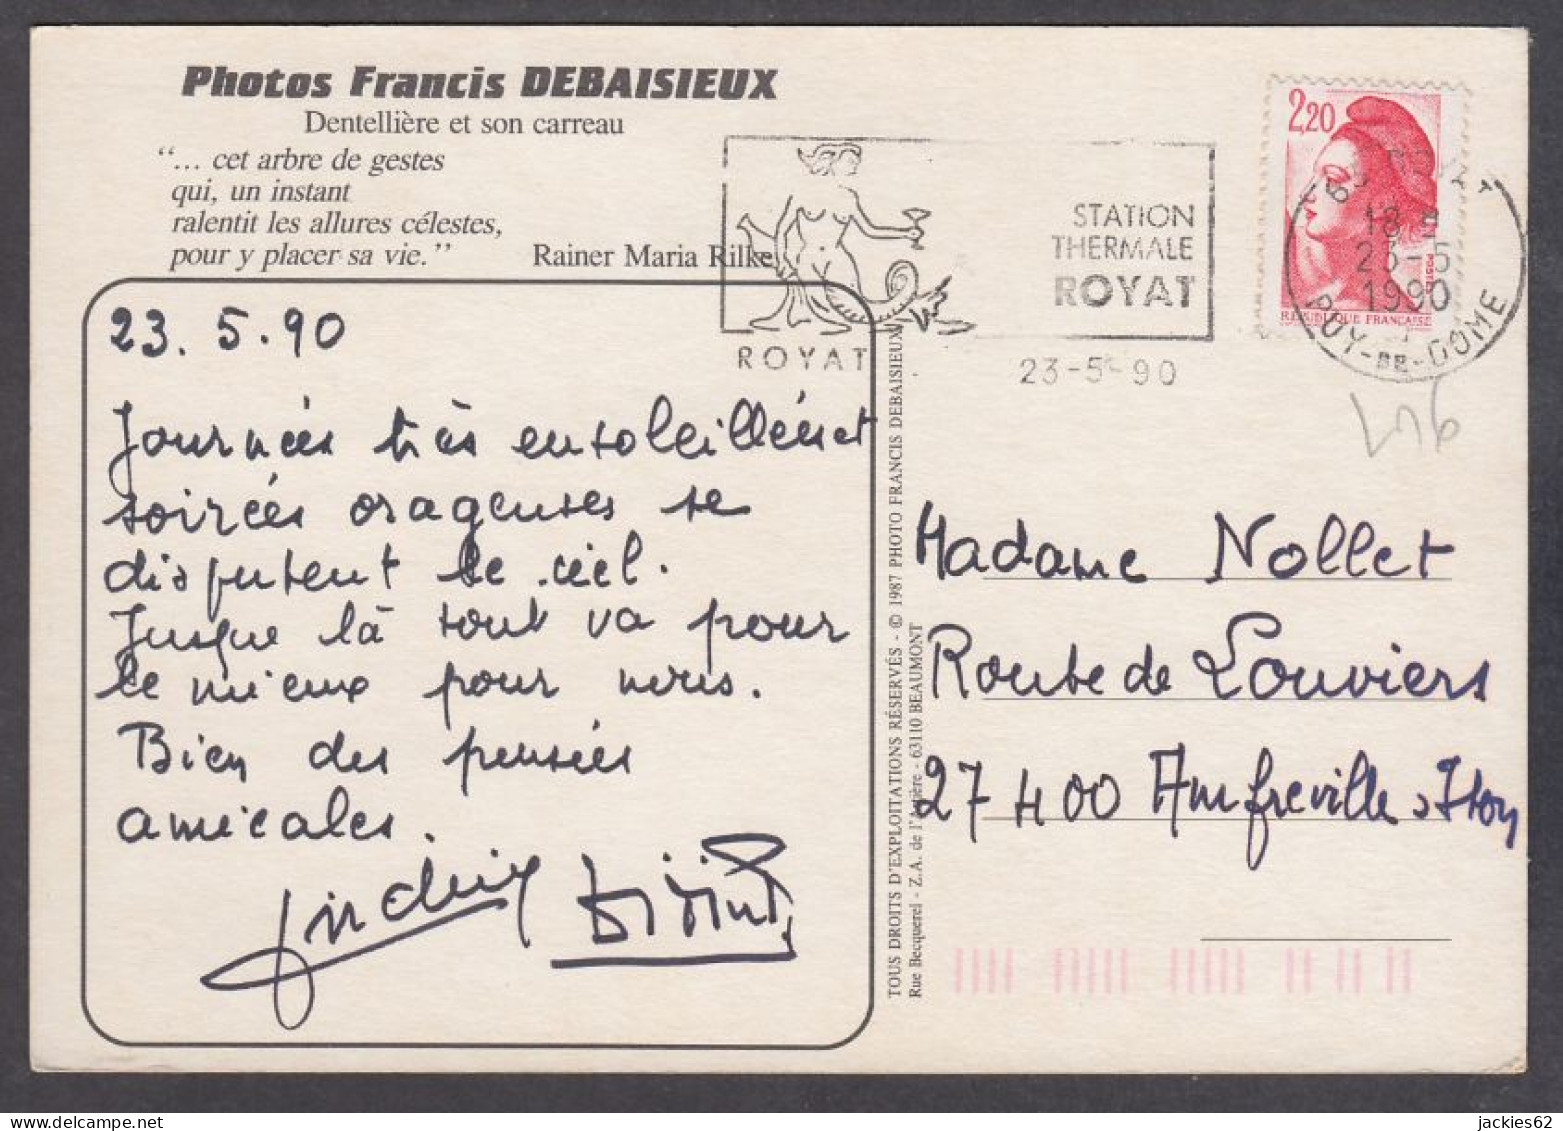 Photos Francis DEBAISIEUX
Dentellière et son carreau
“... cet arbre de gestes
qui, un instant
ralentit les allures célestes,
pour y placer sa vie.”
Rainer Maria Rilke
STATION
THERMALE
ROYAT
ROYAT
23-5-90
2,20
POSTES
REPUBLIQUE FRANÇAISE
18 H
23-5
1990
PUY-DE-DOME
23.5.90
Journées très ensoleillées et
soirées orageuses se
disputent le ciel.
Jusque là tout va pour
le mieux pour nous.
Bien des pensées
amicales.
TOUS DROITS D'EXPLOITATIONS RÉSERVÉS - © 1987 PHOTO FRANCIS DEBAISIEUX
Rue Becquerel - Z.A. de l'Artière - 63110 BEAUMONT
Madame Nollet
Route de Louviers
27400 Amfreville s Iton
jackies62